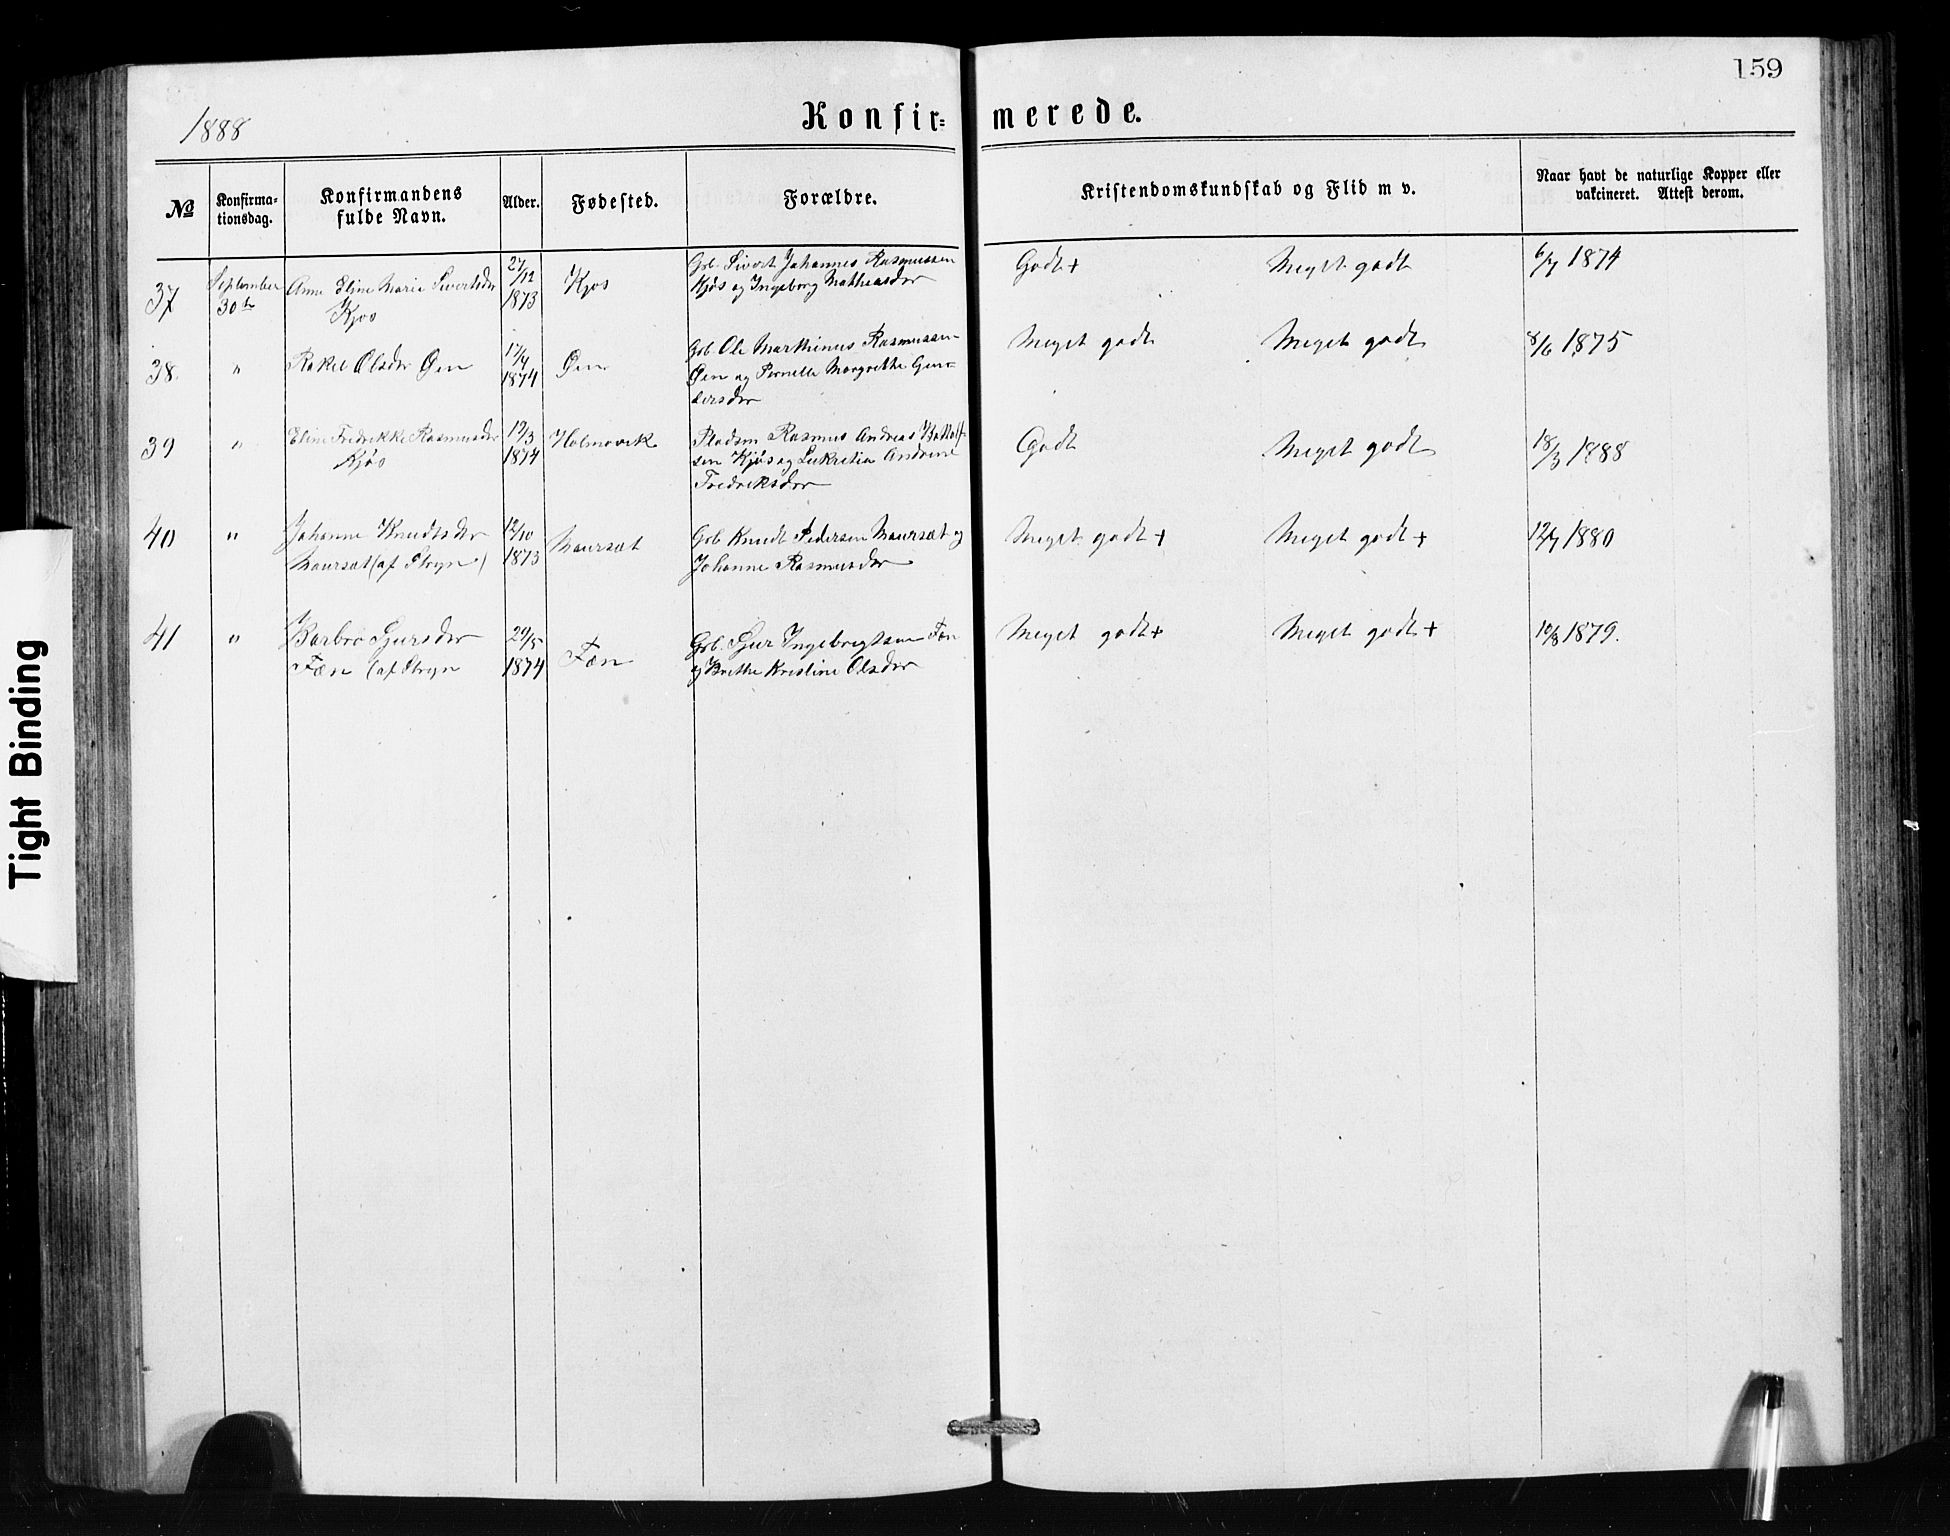 159
1888
Konfir= merede.
№
Konfirma-
tionsdag.
Konfirmandens
fulde Navn.
Alder.
Fødested.
Forældre.
Kristendomskundskab og Flid m v.
Naar havt de naturlige Kopper eller
vakcineret. Attest derom.
37 September Anne Eline Marie Sivertsdr 27/12 Kjos Grb. Sivert Johannes Rasmussen Godt + Meget godt 6/7 1874
30te Kjos 1873 Kjøs og Ingeborg Matheasdr
38. " Rakel Olsdr Øen 17/4 Øen Grb. Ole Marthinus Rasmussen Meget godt Meget godt 8/6 1875
1874 Øen og Pernelle Margrethe Gun-
dersdr
39 " Eline Fredrikke Rasmusdr 19/3 Holmøvik Pladsm Rasmus Andreas Godt Meget godt 18/3 1888
Kjøs 1874 sen Kjøs og Lukretia Andrine
Fredriksdr
40 " Johanne Knudtsdr 12/10 Maursæt Grb Knudt Pedersen Maursæt og Meget godt + Meget godt + 12/7 1880
Maursæt (af Stryn) 1873 Johanne Rasmusdr
41 " Barbro Sjursdr 29/5 Fæn Grb. Sjur Ingebrigtsen Fæn Meget godt + Meget godt + 19/8 1879.
Fæn (af Stryn 1874 og Brithe Kristine Olsdr
Tight Binding